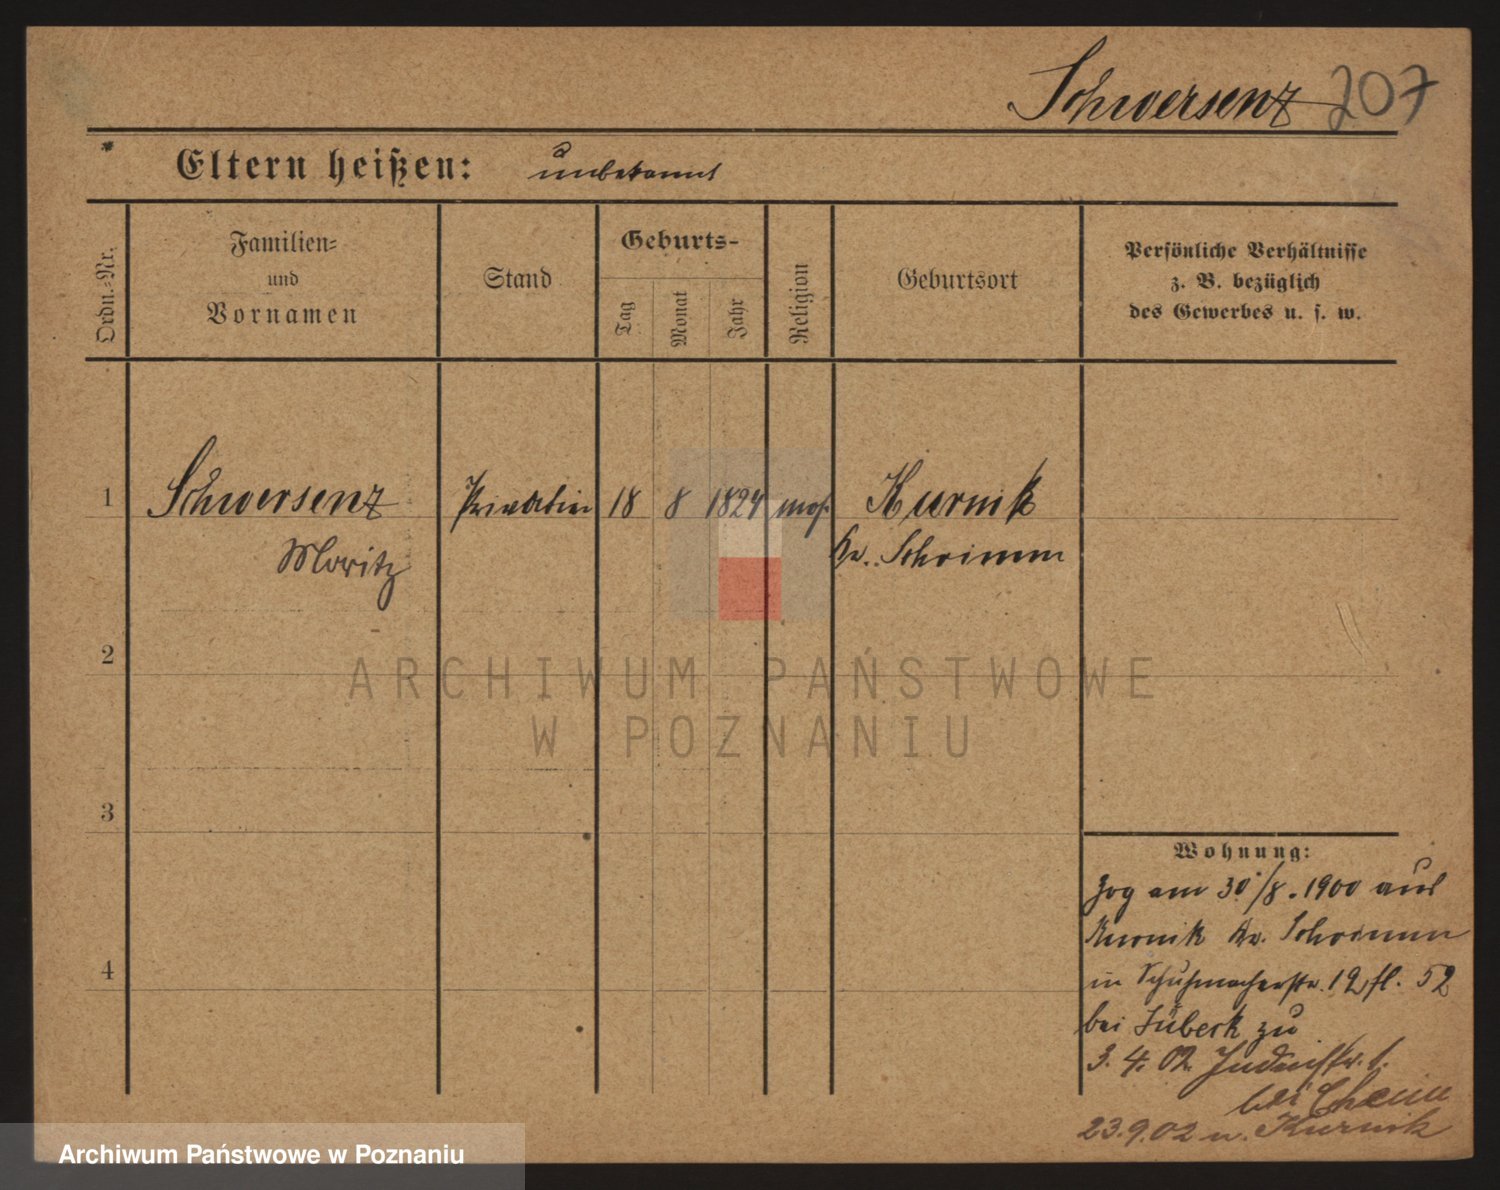 Schwersenz 207
Eltern heißen: unbekannt
Ordn.-Nr.
Familien-
und
Vornamen
Stand
Geburts-
Tag
Monat
Jahr
Religion
Geburtsort
Persönliche Verhältnisse
z. B. bezüglich
des Gewerbes u. s. w.
1 Schwersenz Privatier 18 8 1824 mos. Kurnik
Moritz Kr. Schrimm
2
ARCHIWUM PAŃSTWOWE
W POZNANIU
3
Wohnung:
Zog am 30/8. 1900 aus
Kurnik Kr. Schrimm
in Schuhmacherstr. 12 fl. 52
bei Lübeck zu
3. 4. 02 Judenstr. 1.
bei Chaim
23.9.02 n. Kurnik
4
Archiwum Państwowe w Poznaniu